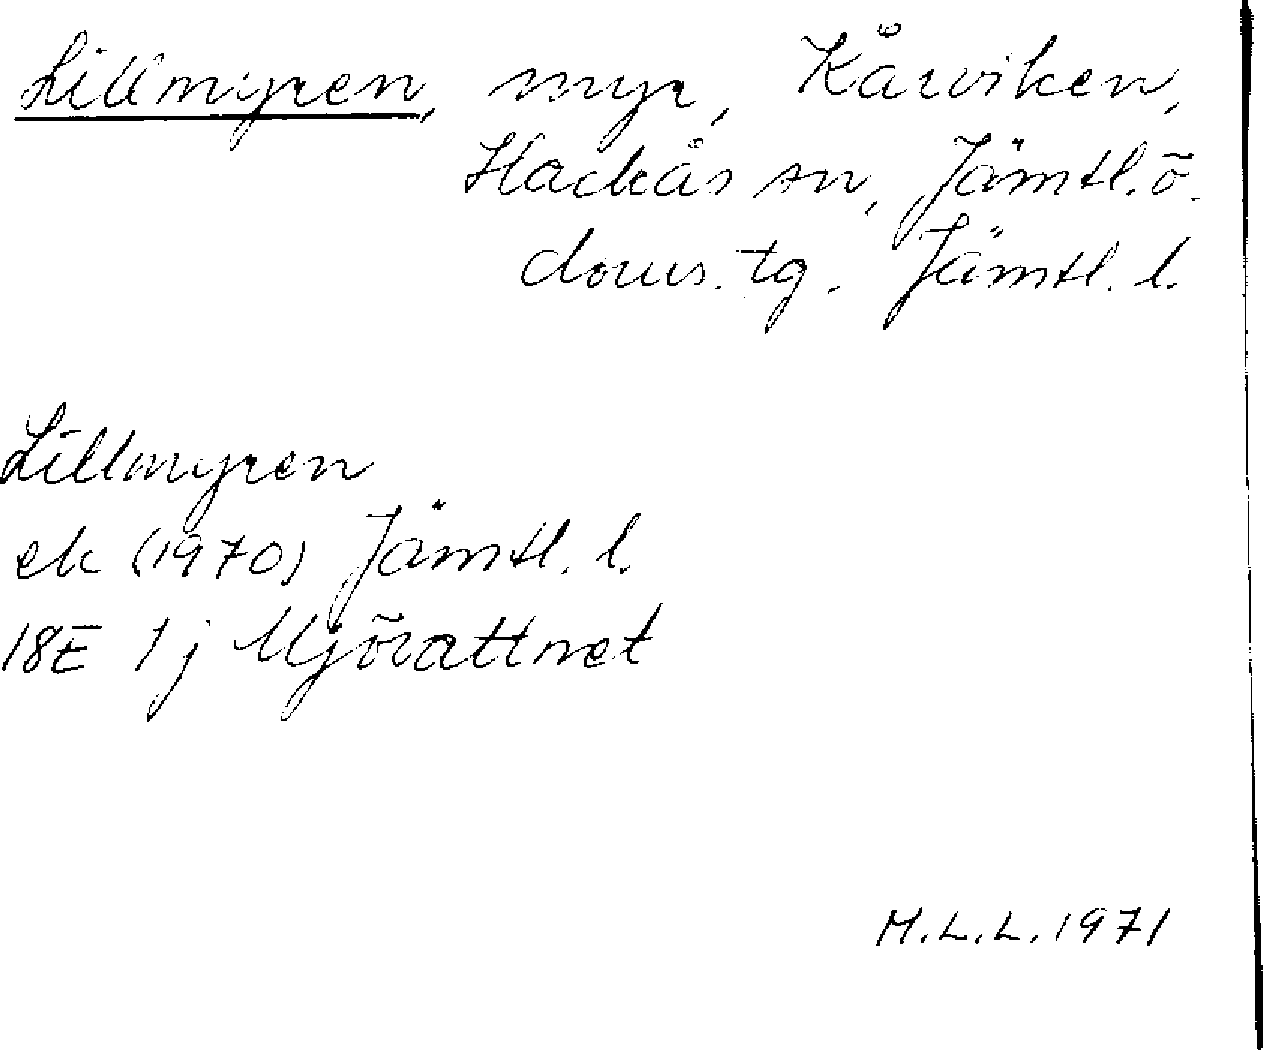 Lillmyren, myr, Kårviken,
Hackås sn, Jämtl. ö.
doms. tg. Jämtl. l.
Lillmyren
ek (1970) Jämtl. l.
18E 1j Mjövattnet
M.L.L. 1971